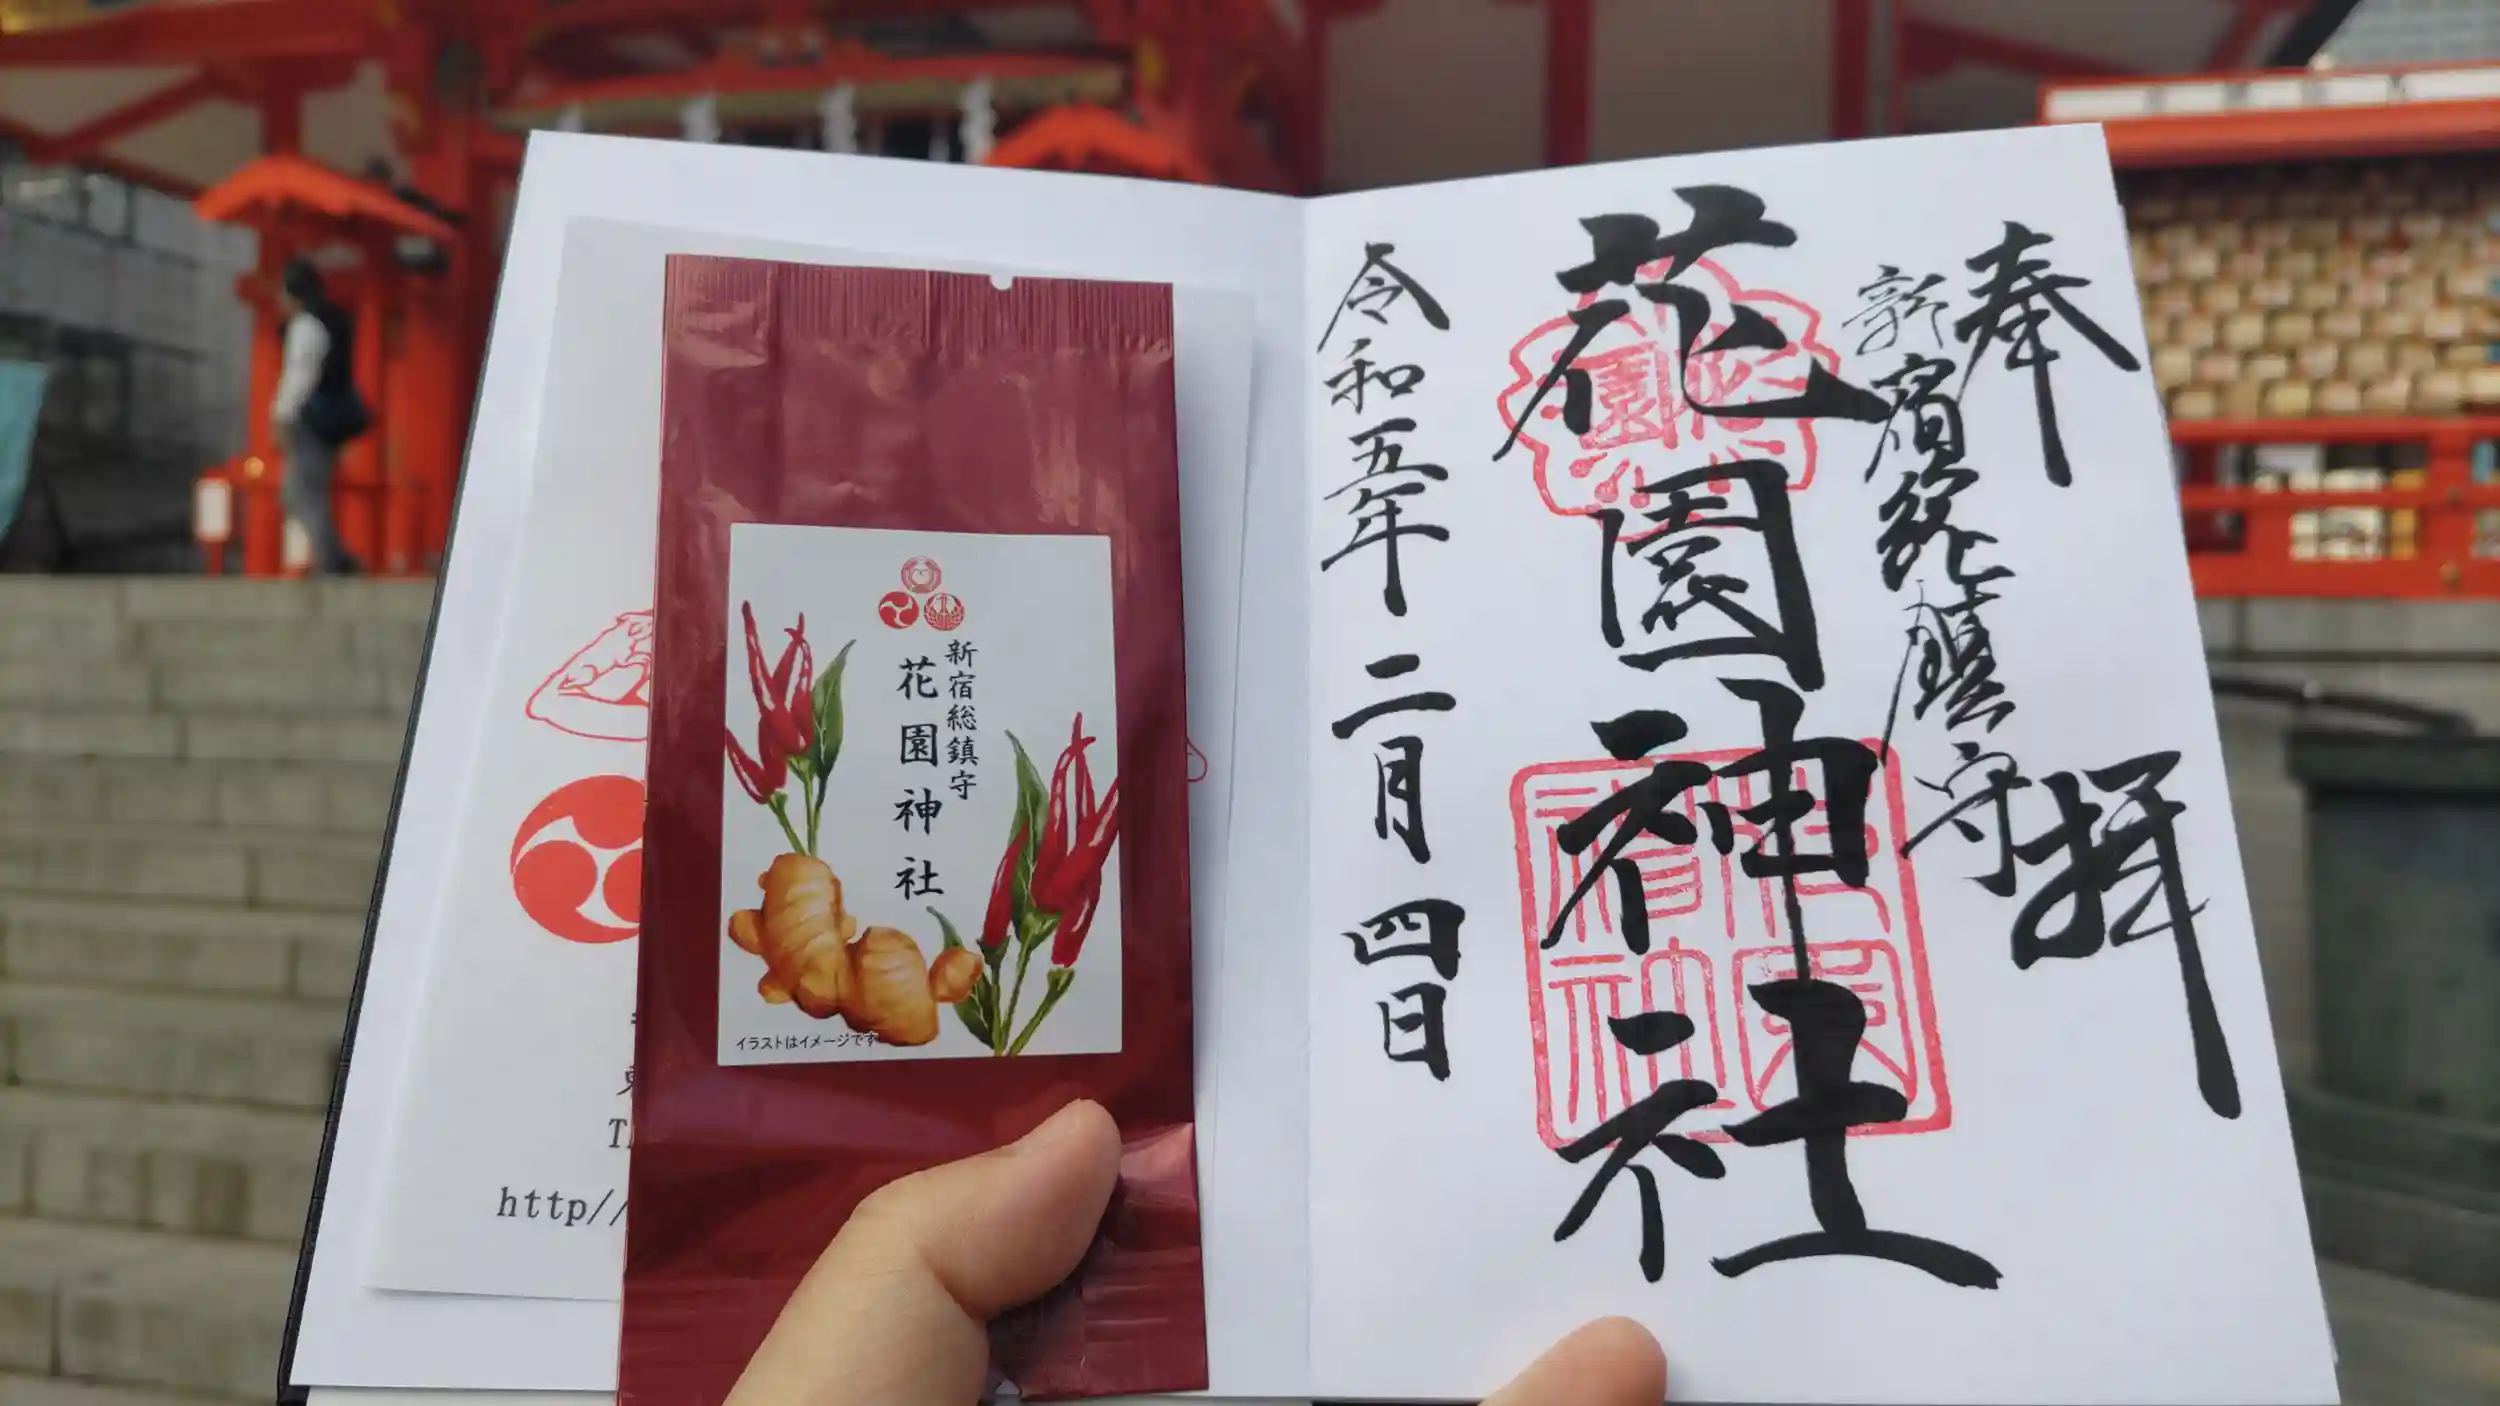 奉拝
新宿総鎮守
花園神社
令和五年二月四日
新宿総鎮守
花園神社
イラストはイメージです
http//